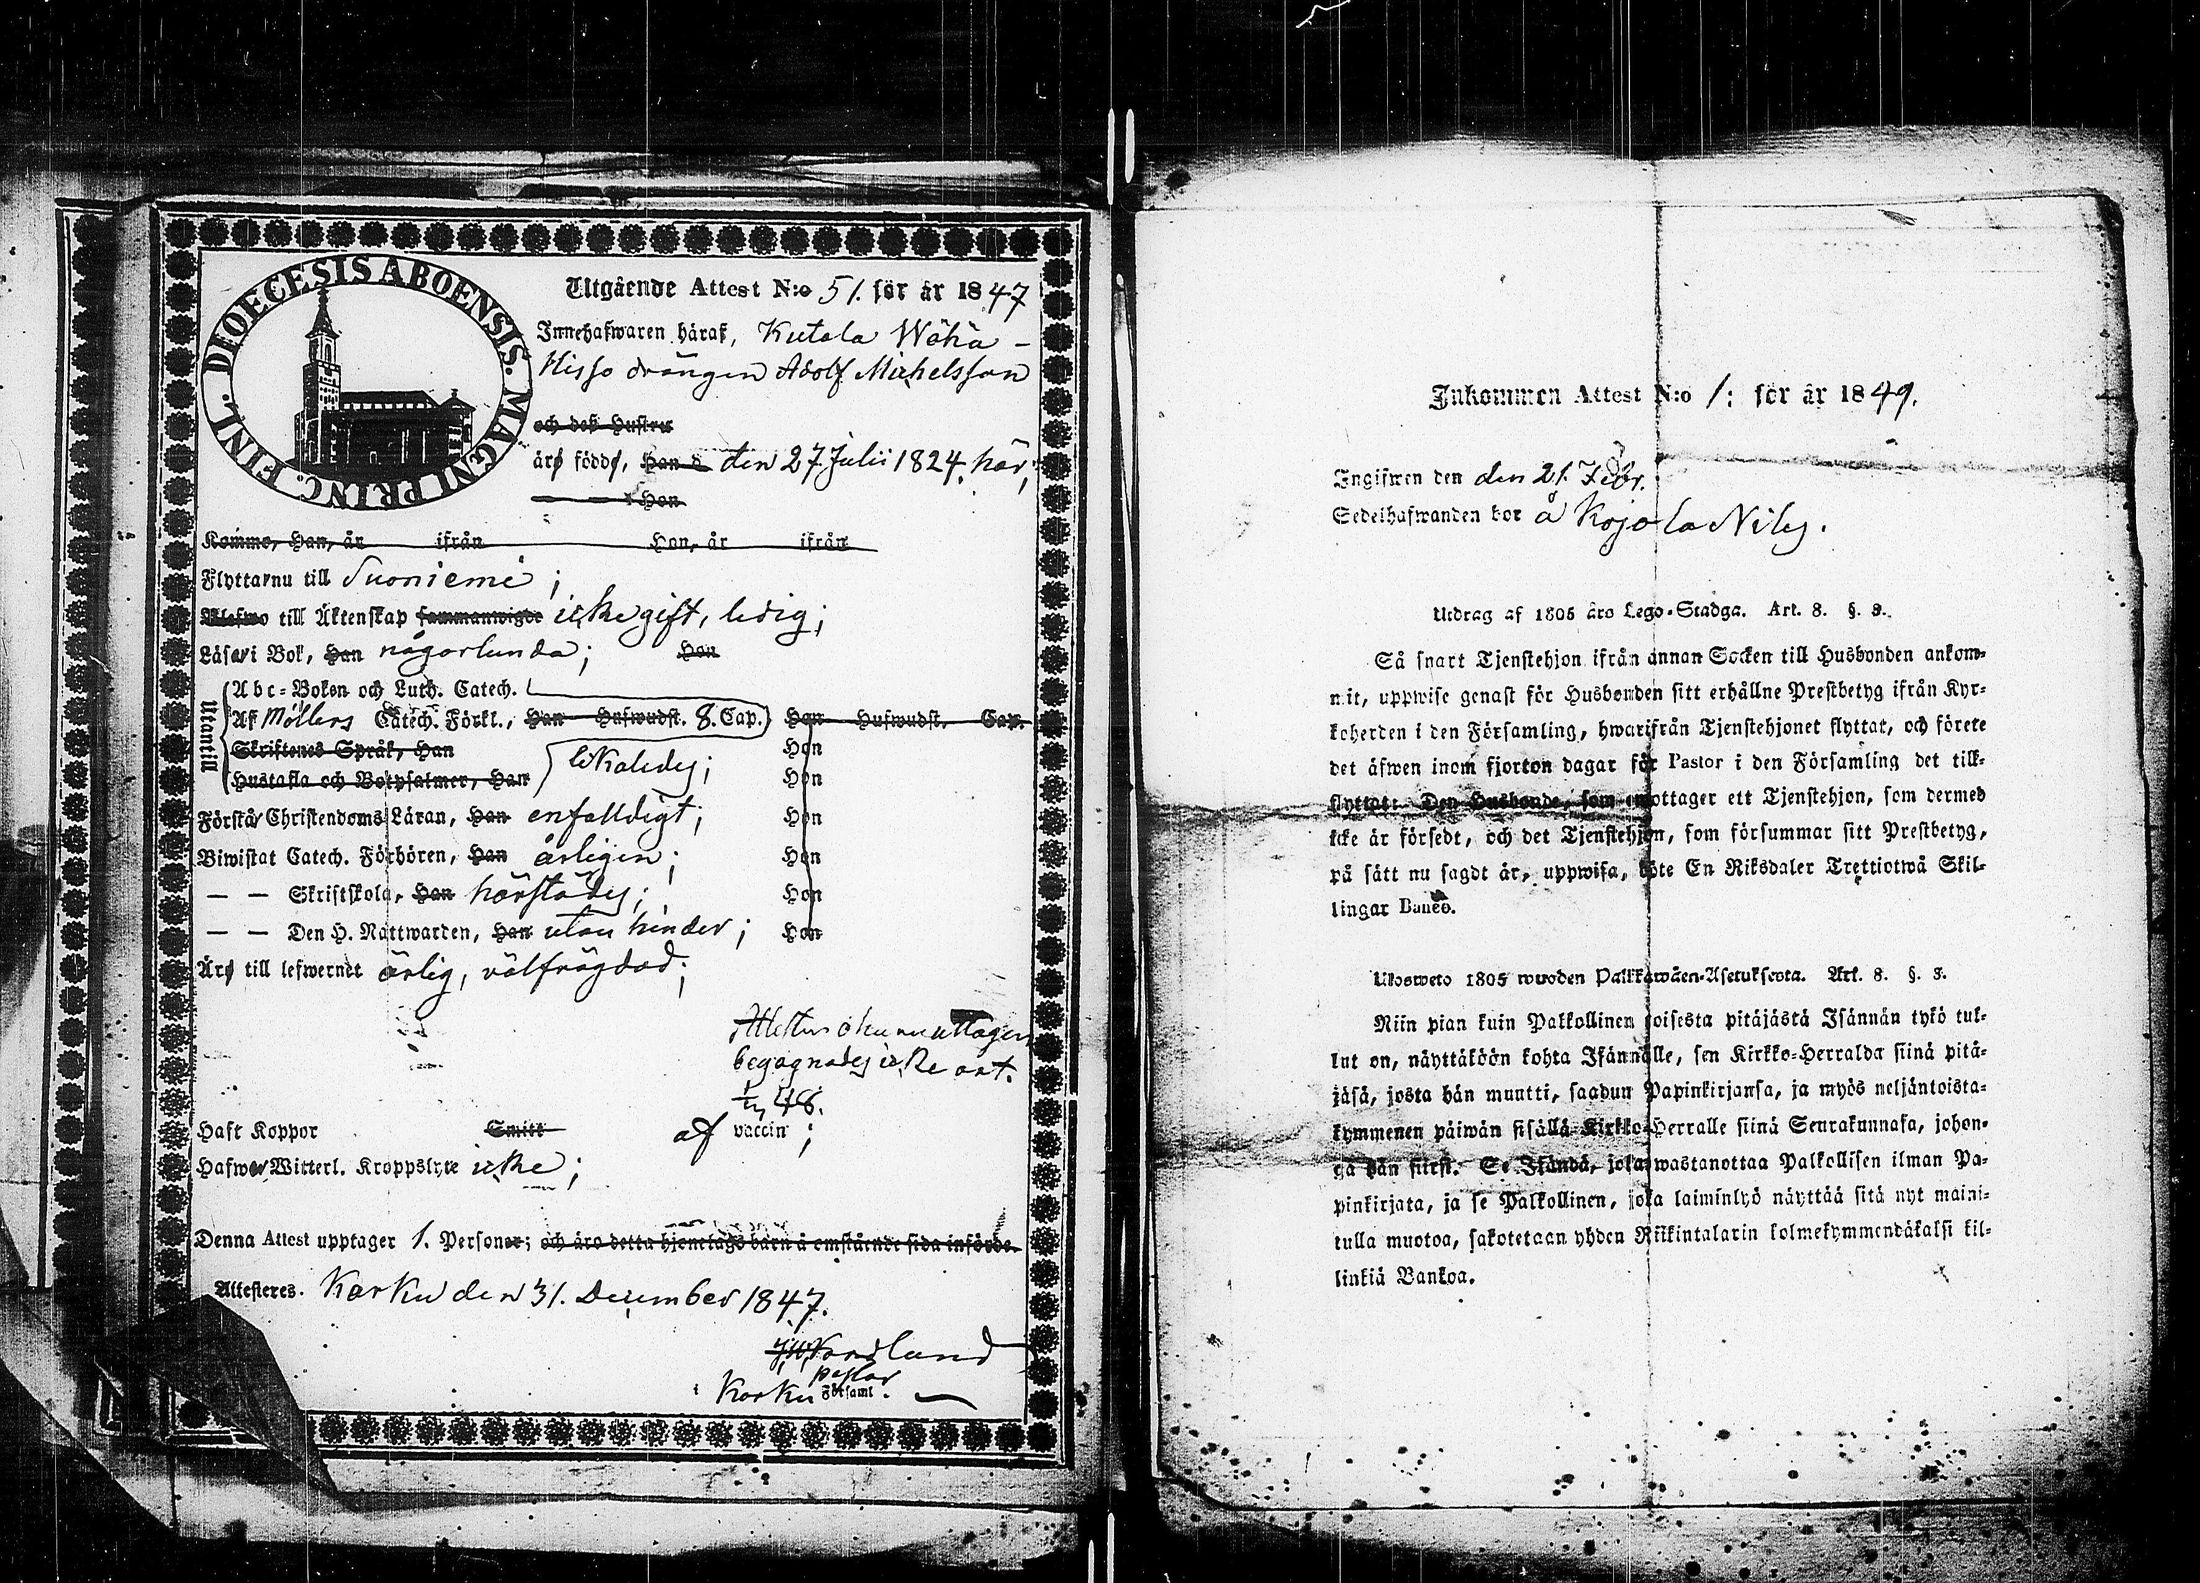 DIOECESIS ABOENSIS. MAGNI PRINC. FINL.
Utgående Attest N:o 51. för år 1847
Innehafwaren häraf, Kutala Wähä-
Hisso drängen Adolf Michelsson
och deß Hustru
äro födde, Han d den 27 Julii 1824, här;
Hon
Komme, Han, år ifrån Hon, år ifrån
Flytta nu till Suoniemi;
Blefwo till Äktenskap sammanwigde icke gift, ledig;
Läsa i Bok, Han någorlunda; Hon
Utantill
Abc-Boken och Luth. Catech.
Af Möllers Catech. Förkl., Han Hufwudst. 8. Cap. Hon Hufwudst. Cap.
Skriftenes Språk, Han Hon
likaledes;
Hustafla och Botpsalmer, Han Hon
Förstå Christendoms Läran, Han enfaldigt; Hon
Biwistat Catech. Förhören, Han årligen; Hon
— — Skriftskola, Han härstädes; Hon
— — Den H. Nattwarden, Han utan hinder; Hon
Äro till lefwernet ärlig, välfrägdad;
begagnades icke
48.
Haft Koppor Smitt af vaccin;
Hafwa Witterl. Kroppslyte icke;
Denna Attest upptager 1. Personer; och äro detta hjonelags barn å omstående sida införde.
Attesteres. Karku den 31. December 1847.
Nordland
Pastor
Karku Församl.
Inkommen Attest N:o 1: för år 1849.
Ingifwen den den 21. Febr.
Sedelhafwanden bor å Kojola Nily.
Utdrag af 1805 års Lego-Stadga. Art. 8. §. 8.
Så snart Tjenstehjon ifrån annan Socken till Husbonden ankom-
mit, uppwise genast för Husbonden sitt erhållne Prestbetyg ifrån Kyr-
koherden i den Församling, hwarifrån Tjenstehjonet flyttat, och förete
det äfwen inom fjorton dagar för Pastor i den Församling det till-
flyttat: Den Husbonde, som emottager ett Tjenstehjon, som dermed
icke är försedt, och det Tjenstehjon, som försummar sitt Prestbetyg,
på sätt nu sagdt är, uppwisa, böte En Riksdaler Trettiotwå Skil-
lingar Banco.
Ulosweto 1805 wuoden Palkkawäen-Asetuksesta. Art. 8. §. 8.
Niin pian kuin Palkollinen toisesta pitäjästä Isännän tykö tul-
lut on, näyttäköön kohta Isännälle, sen Kirkko-Herralda siinä pitä-
jäsä, josta hän muutti, saadun Papinkirjansa, ja myös neljäntoista-
kymmenen päiwän sisällä Kirkko-Herralle siinä Seurakunnasa, johon-
ga hän siirsi. Se Isändä, joka wastanottaa Palkollisen ilman Pa-
pinkirjata, ja se Palkollinen, joka laiminlyö näyttää sitä nyt maini-
tulla muotoa, sakotetaan yhden Riikintalarin kolmekymmendäkaksi kil-
linkiä Bankoa.